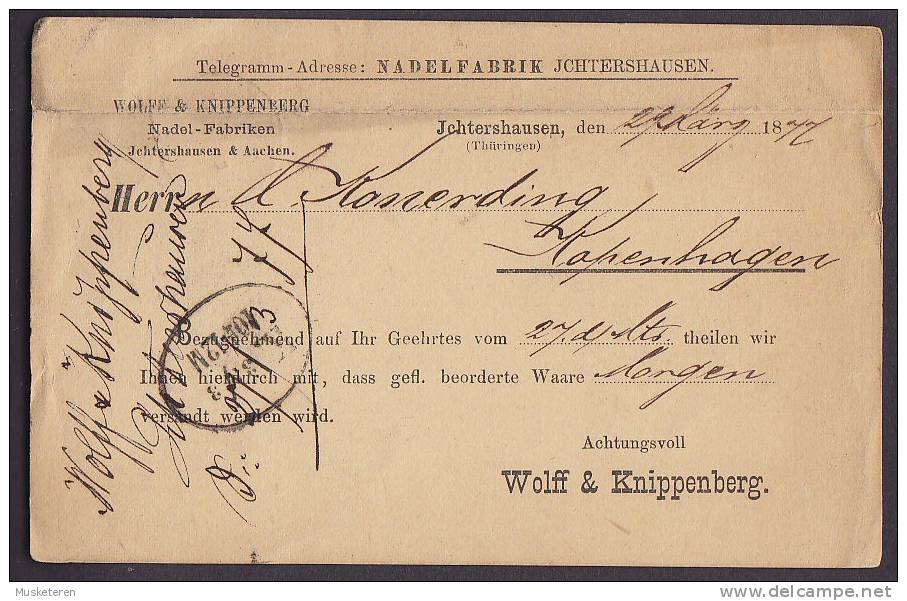 Telegramm-Adresse: NADELFABRIK JCHTERSHAUSEN.
WOLFF & KNIPPENBERG
Nadel-Fabriken
Jchtershausen & Aachen.
Jchtershausen, den 29 März 1877
(Thüringen)
Herrn A. Konerding
Kopenhagen
Bezugnehmend auf Ihr Geehrtes vom 27. d/Mts. theilen wir
Ihnen hierdurch mit, dass gefl. beorderte Waare Morgen
versandt werden wird.
Achtungsvoll
Wolff & Knippenberg.
Wolff & Knippenberg
Musketeren
delcampe.net